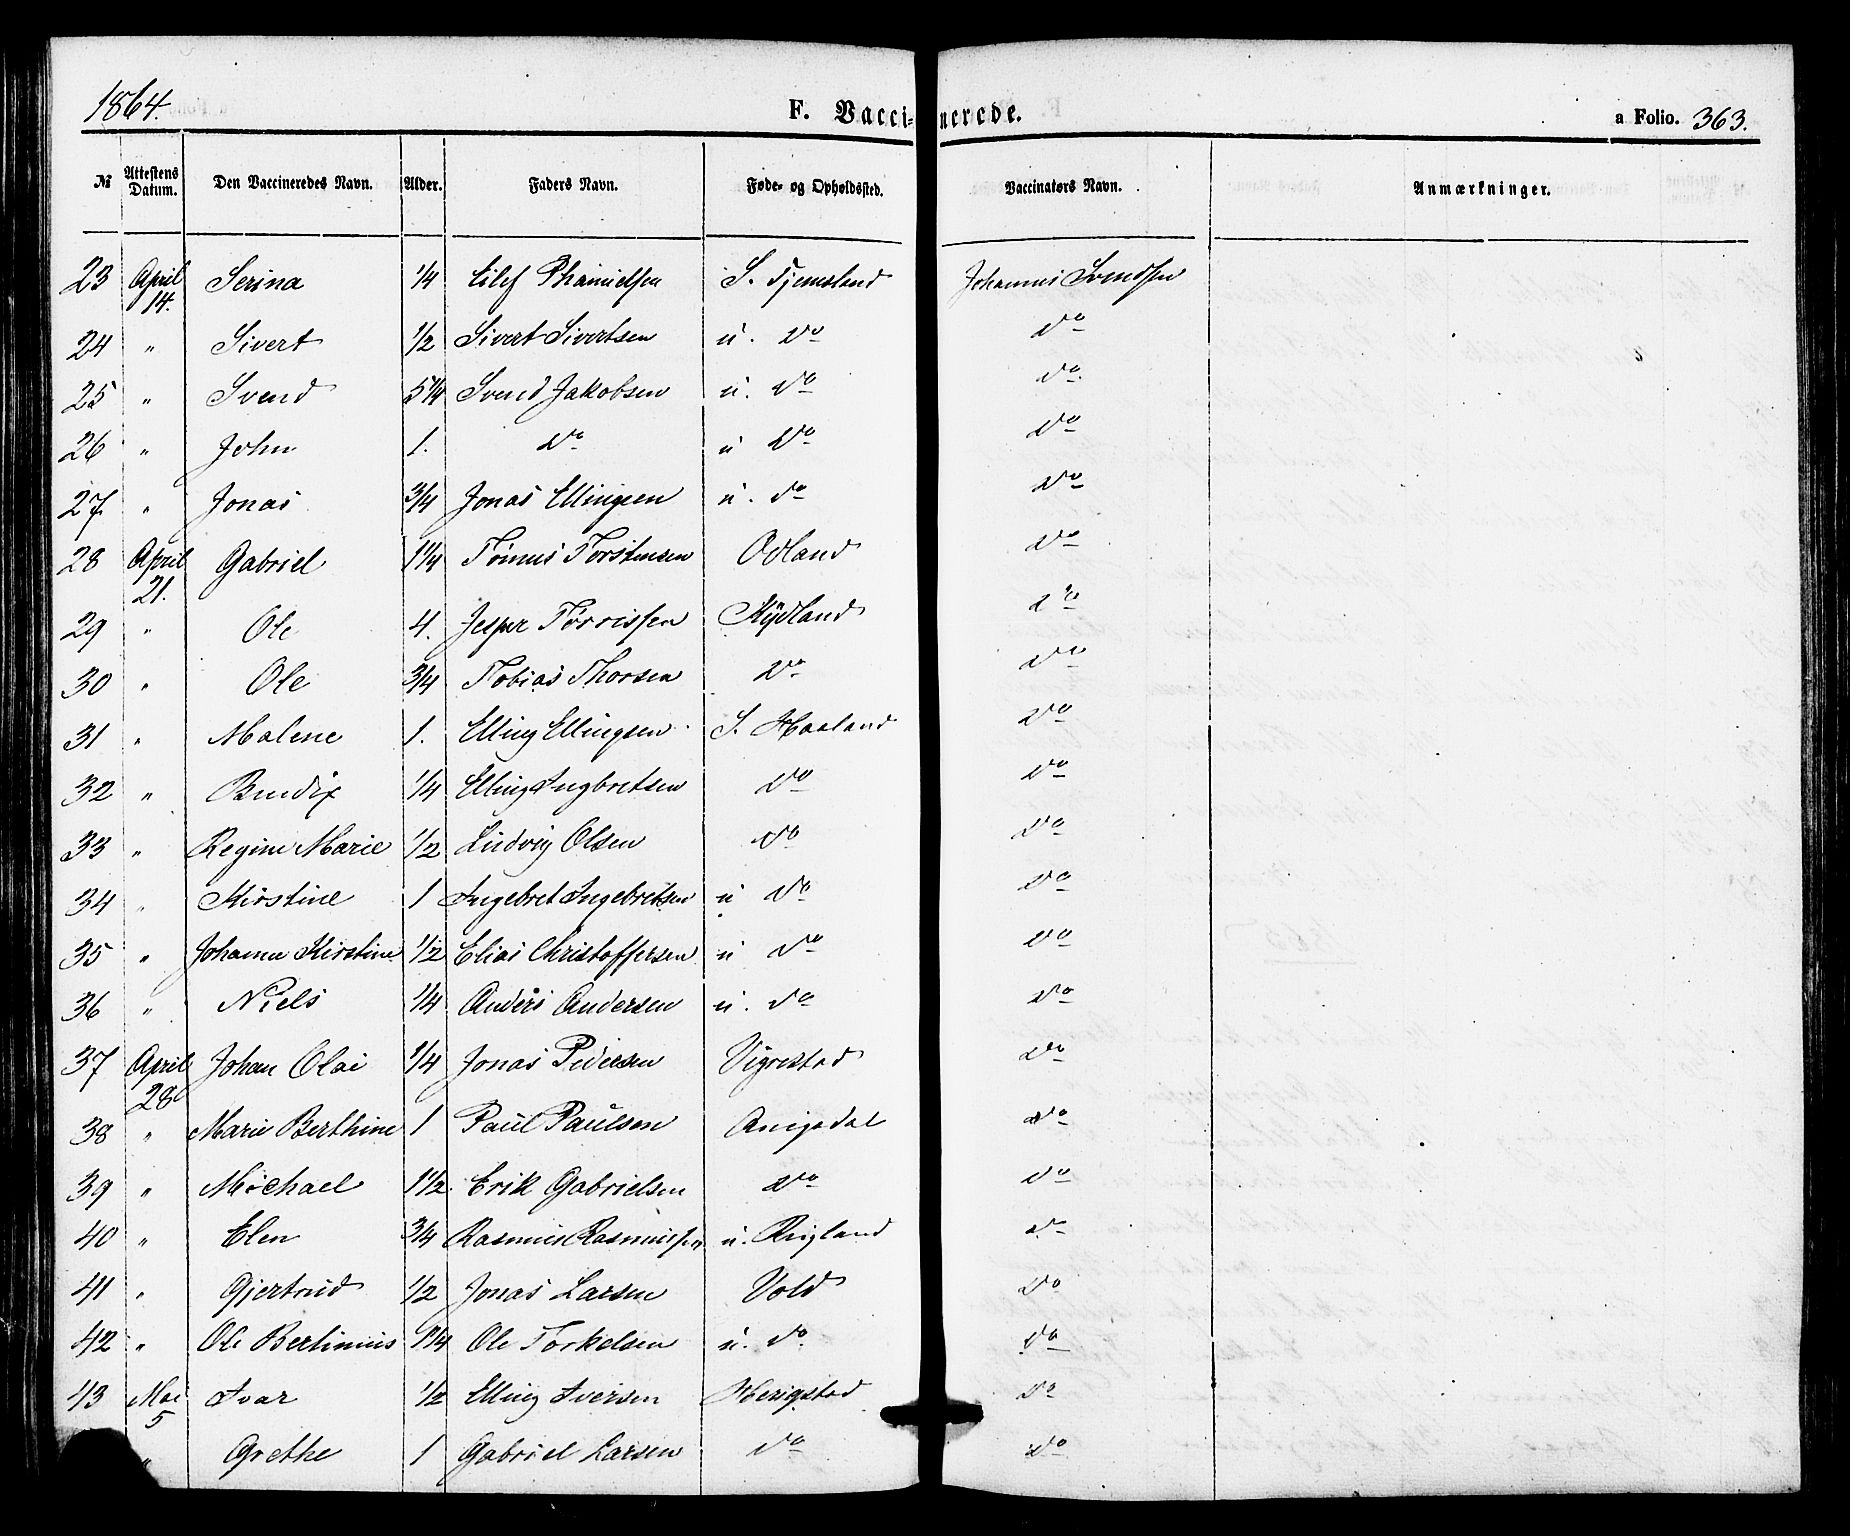 1864. F. Vacci- nerede. a Folio. 363.
№ Attestens Datum. Den Vaccineredes Navn. Alder. Faders Navn. Føde- og Opholdssted. Vaccinators Navn. Anmærkninger.
23 April 14. Serina 1/4 Eilef S. Tjemsland Johannes Svendsen
24 " Sivert 1/2 Sivert Sivertsen u. do do
25 " Svend 5 1/4 Svend Jakobsen u. do do
26 " John 1. do u do do
27 " Jonas 3/4 Jonas Ellingsen u. do do
28 April 21. Gabriel 1 1/4 Tønnes Torstensen Odland do
29 " Ole 4. Jesper Tørrissen Kÿdland do
30 " Ole 3/4 Tobias Thorsen do do
31 " Malene 1. Elling Ellingsen S. Haaland do
32 " Bendix 1/4 Elling Ingbretsen do do
33 " Regine Marie 1/2 Ludvig Olsen do do
34 " Kirstine 1 Ingebret Ingebretsen u do do
35 " Johanne Kirstine 1/2 Elias Christoffersen u do do
36 " Niels 1/4 Anders Andersen u. do do
37 April 28 Johan Olai 1/4 Jonas Pedersen Vigrestad do
38 " Marie Berthine 1 Paul Paulsen do
39 " Michael 1 1/2 Erik Gabrielsen do do
40 " Elen 3/4 Rasmus Rasmussen u. do
41 " Gjertrud 1/2 Jonas Larsen Vold do
42 " Ole Bertinius 1/4 Ole Torkelsen u. do do
43 Mai 5 Ivar 1/2 Elling Iversen Herigstad do
" Grethe 1 Gabriel Larsen do do